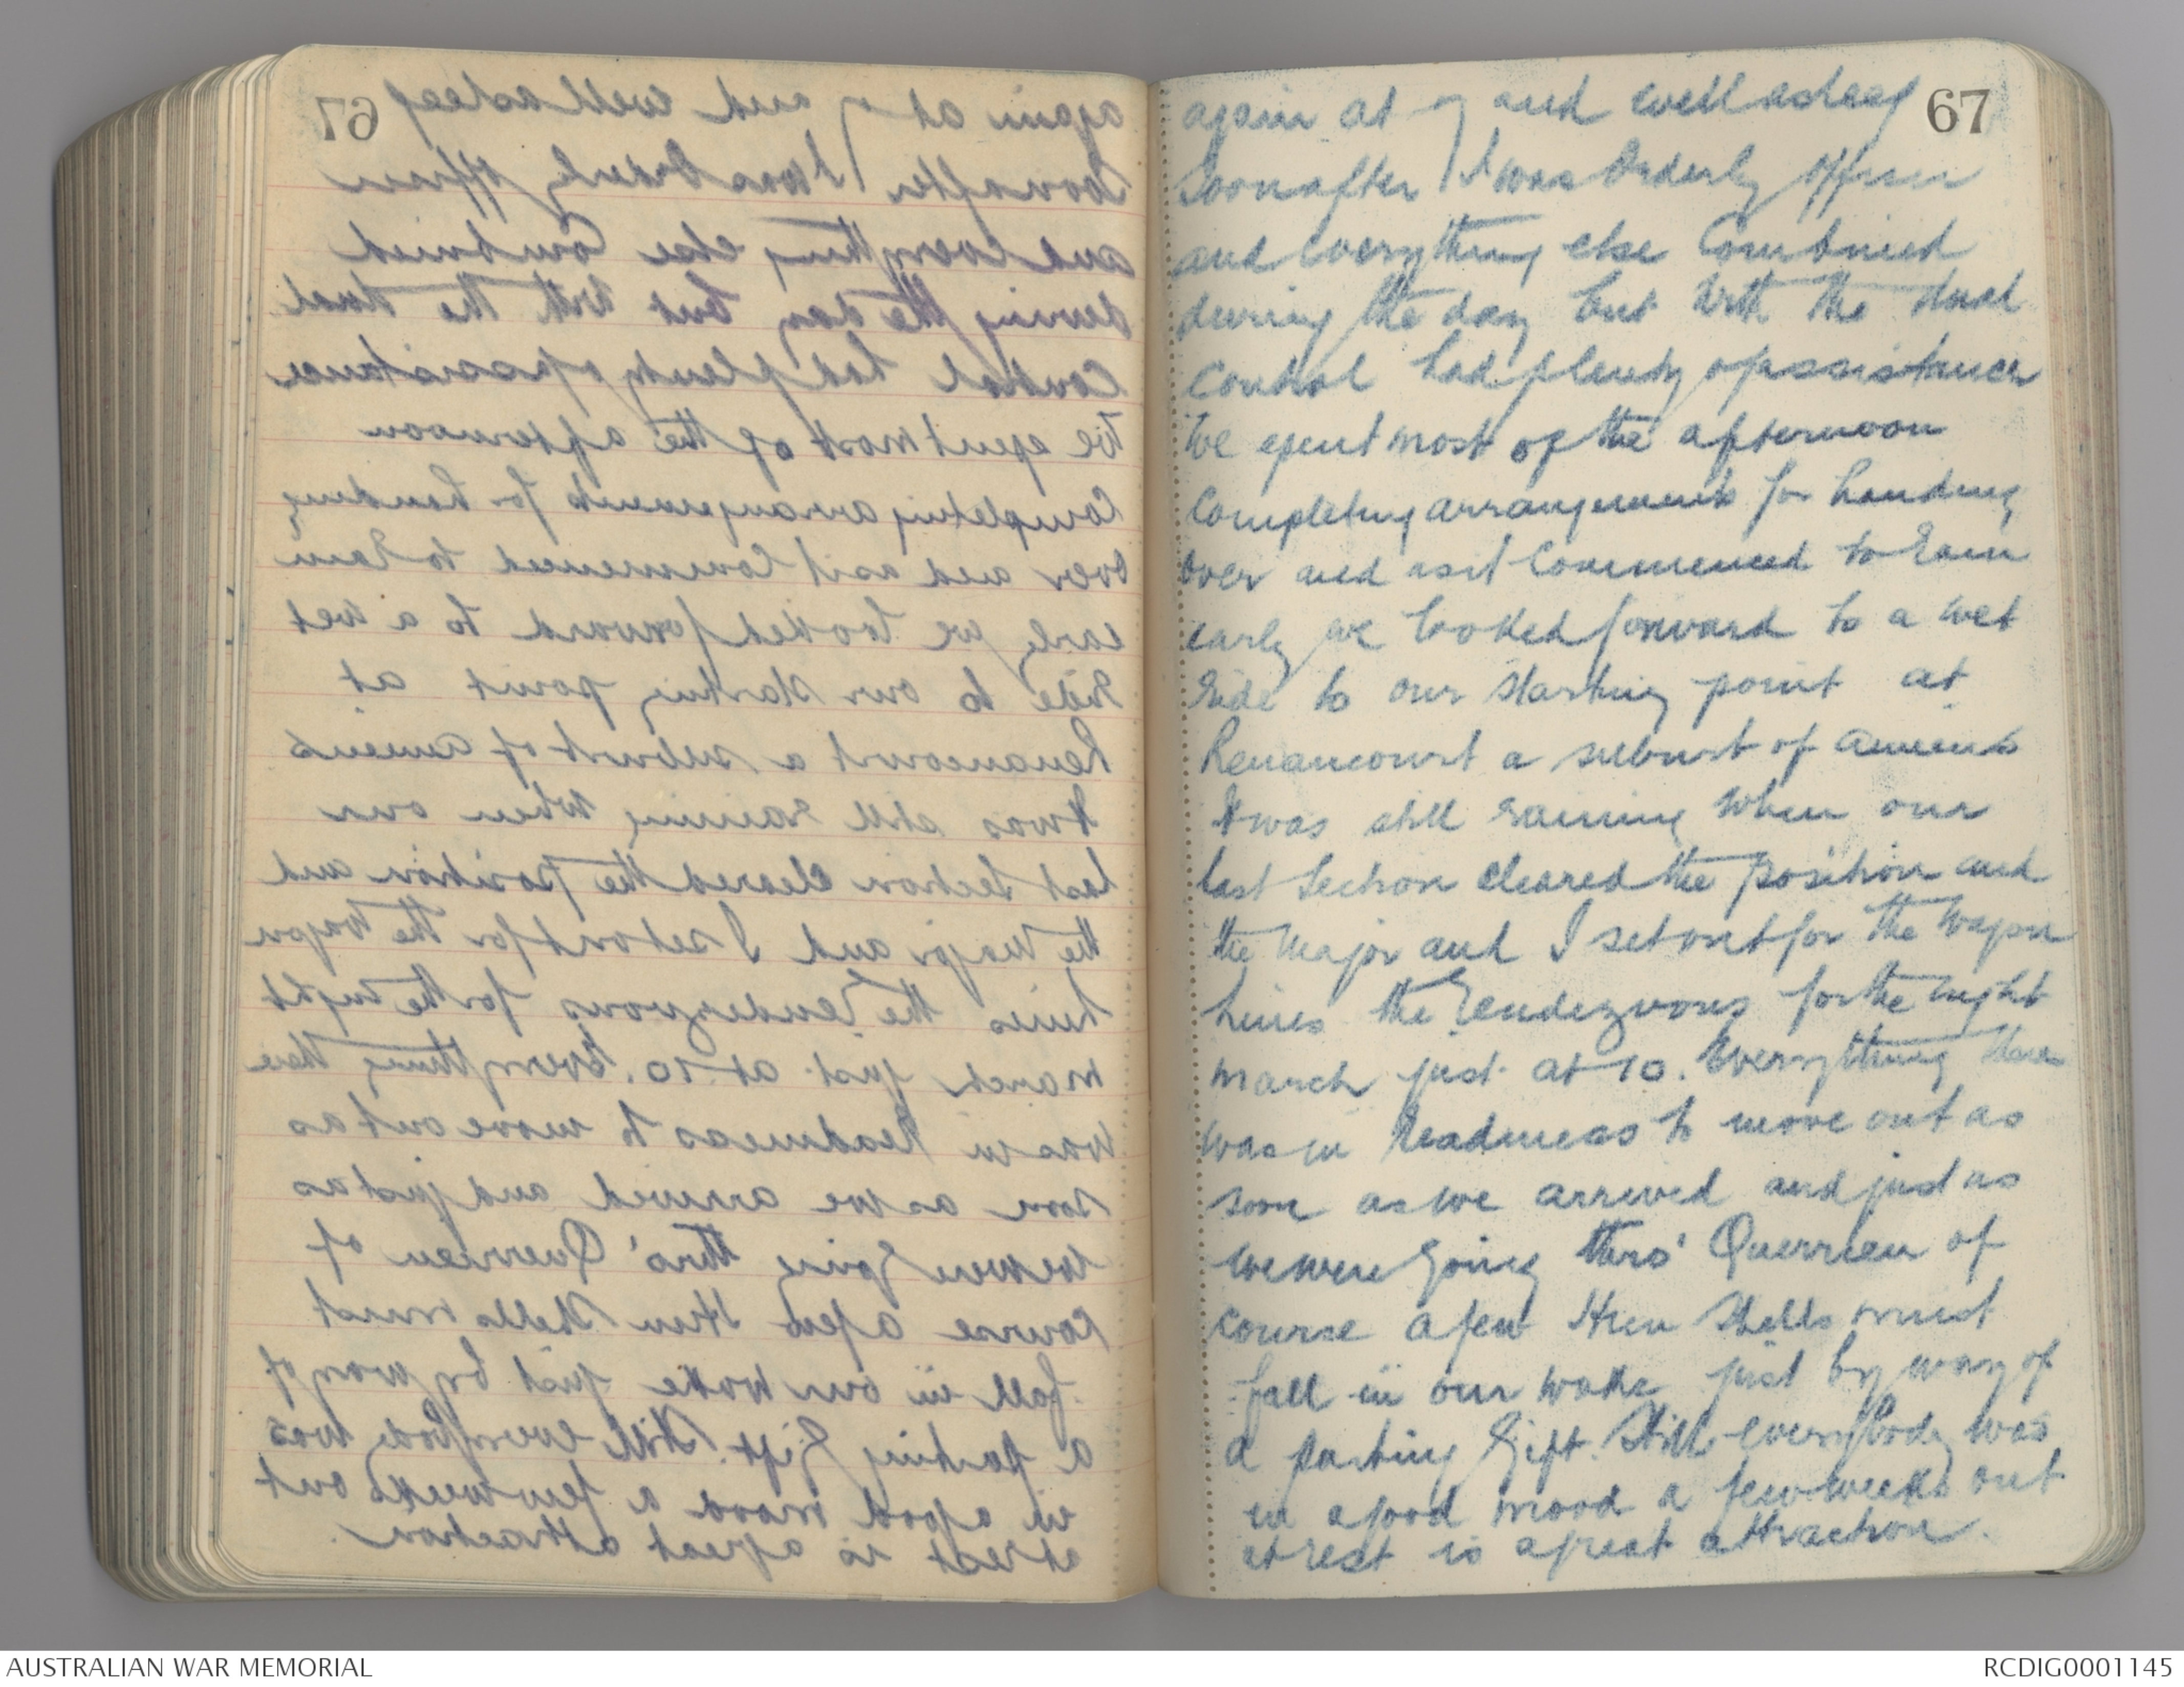 67
again at 7 and well asleep
soon after / I was Orderly Officer
and everything else Combined
during the day but with the dual
control had plenty of assistance
We spent most of the afternoon
Completing arrangements for handing
over and as it Commenced to rain
early we looked forward to a wet
ride to our starting point at
Renancourt a suburb of Amiens
It was still raining when our
last Section cleared the position and
the Major and I set out for the Wagon
lines the rendezvous for the night
march just at 10. Everything there
was in readiness to move out as
soon as we arrived and just as
we were going thro' Querrieu of
course a few Hun Shells must
fall in our wake just by way of
a parting Gift. Still everybody was
in a good mood a few weeks out
at rest is a great attraction.
AUSTRALIAN WAR MEMORIAL
RCDIG0001145